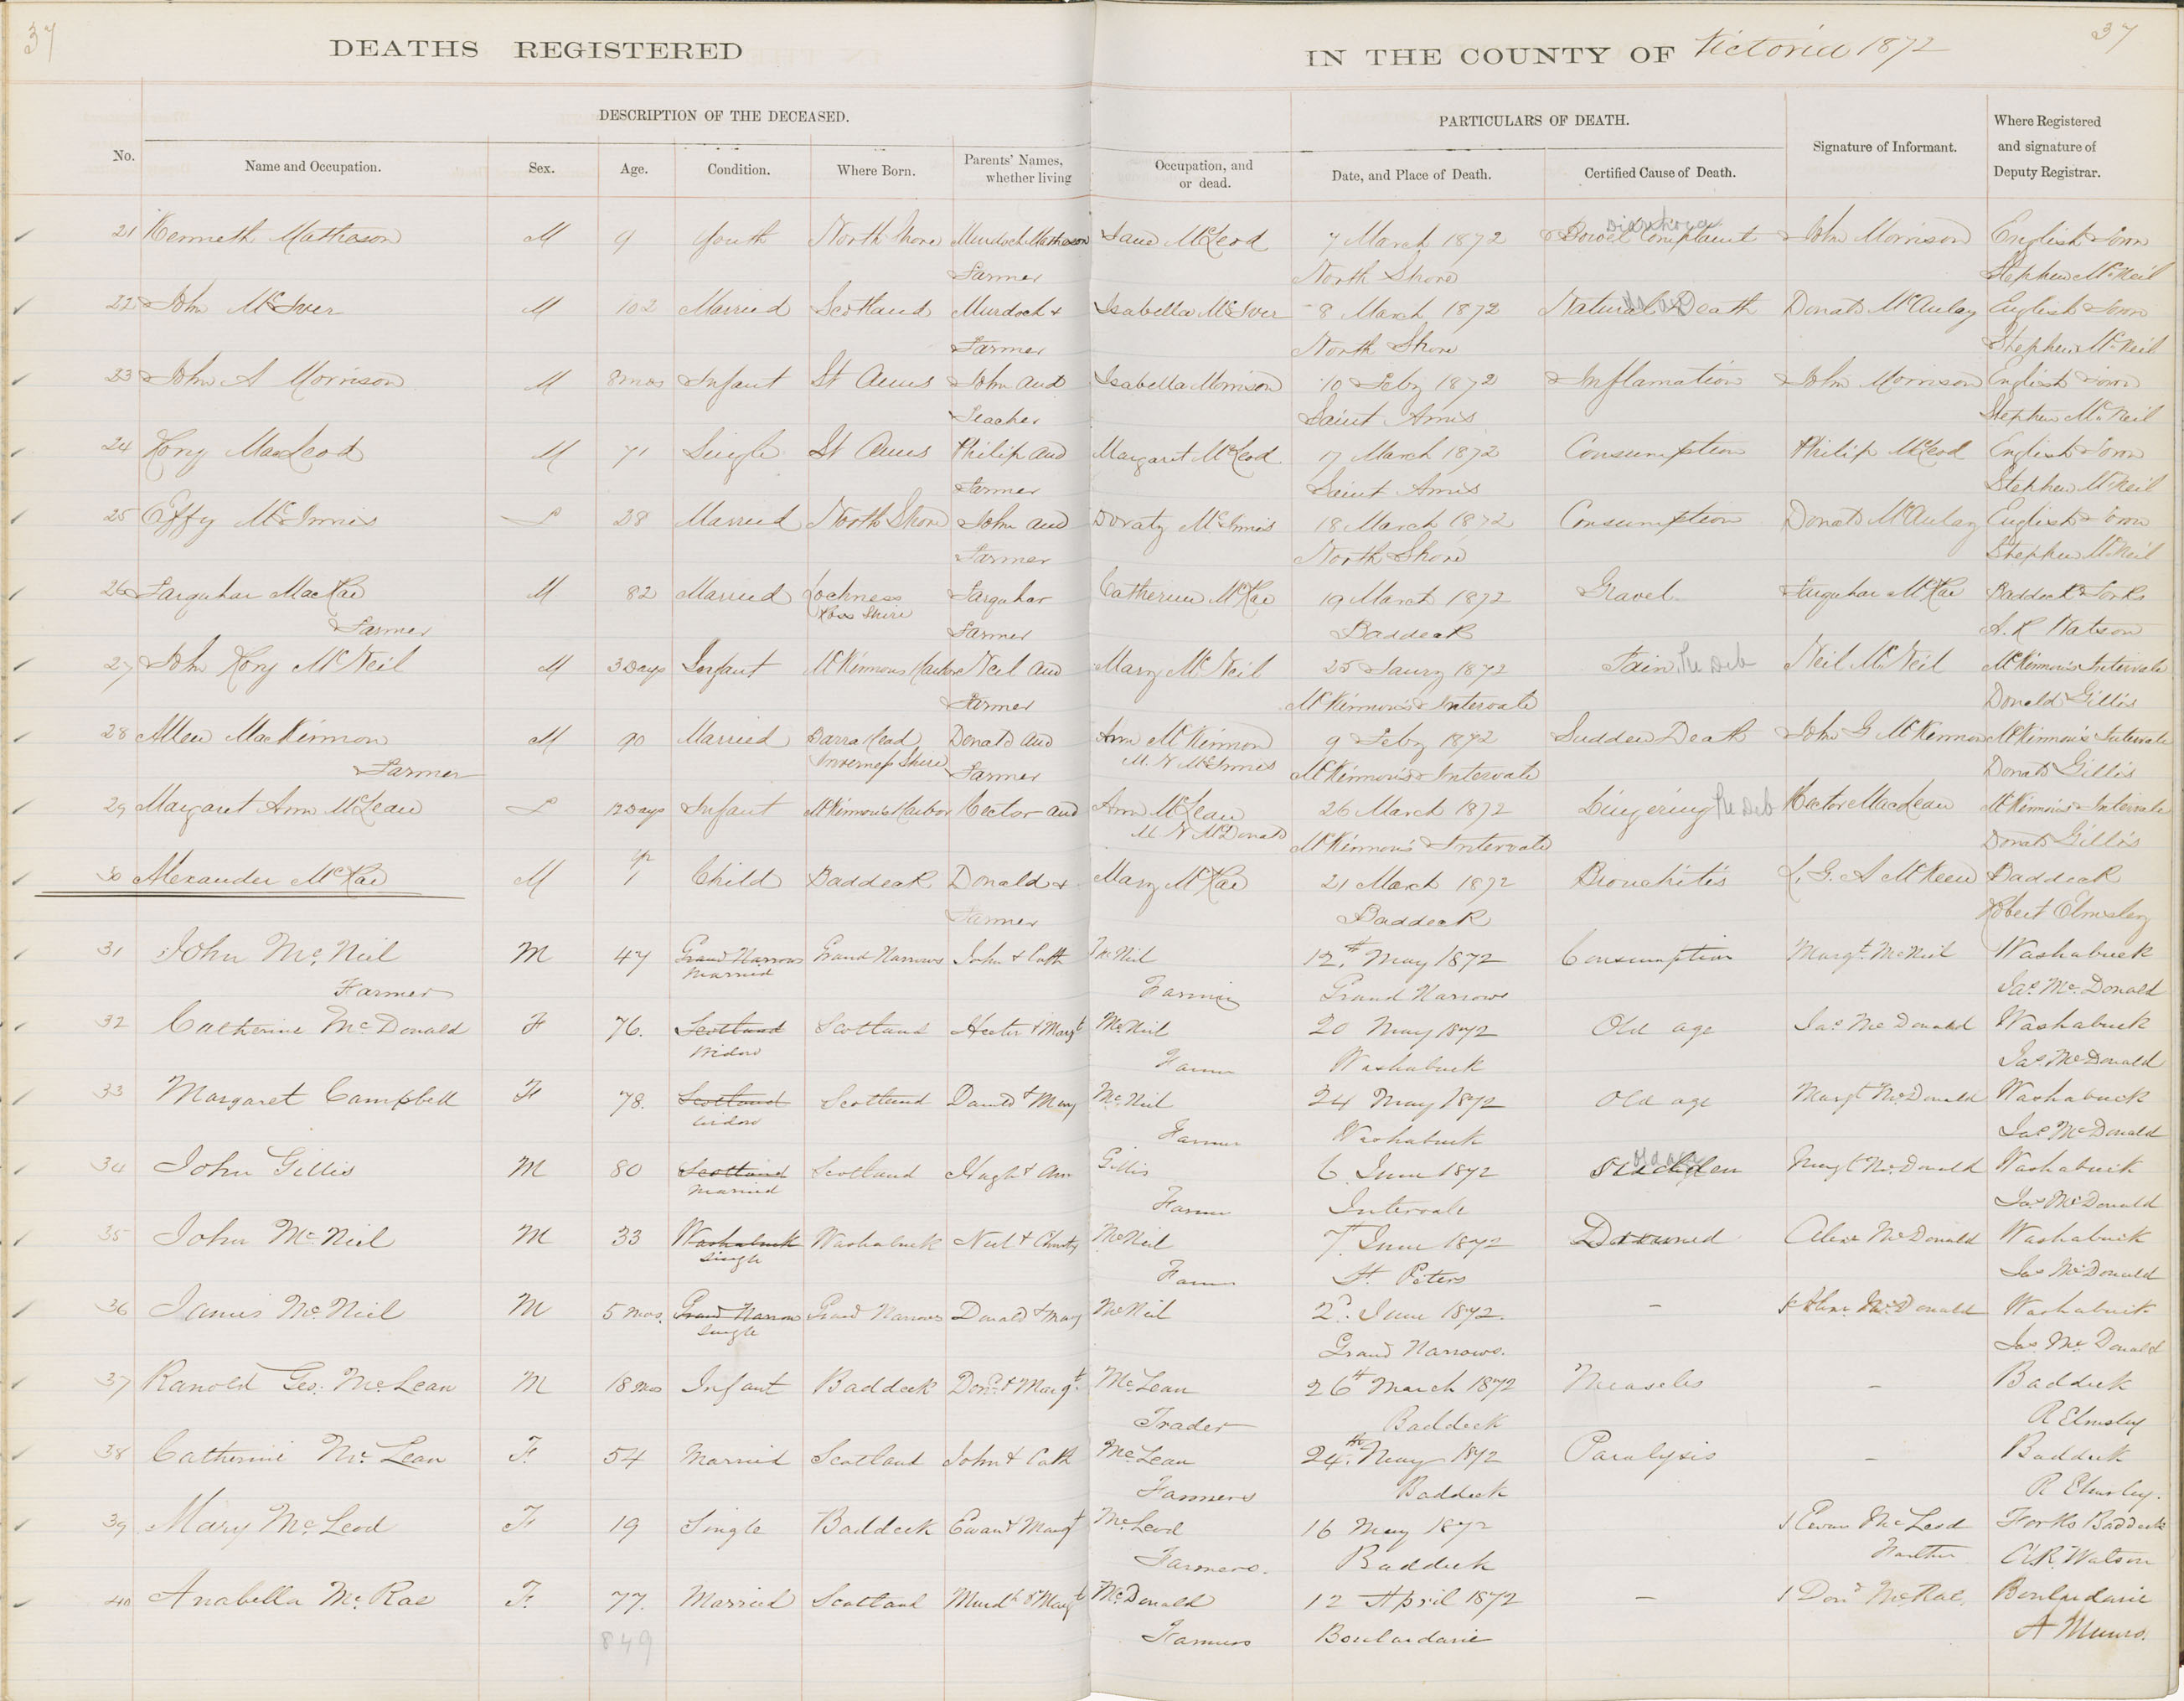 37
37
DEATHS REGISTERED IN THE COUNTY OF Victoria 1872
DESCRIPTION OF THE DECEASED. PARTICULARS OF DEATH.
No. Name and Occupation. Sex. Age. Condition. Where Born. Parents' Names, whether living Occupation, and or dead. Date, and Place of Death. Certified Cause of Death. Signature of Informant. Where Registered and signature of Deputy Registrar.
21 Kenneth Matheson M 9 Youth North Shore Murdoch Matheson Jane McLeod 7 March 1872 Bowel Complaint Diarrhoea John Morrison English Town
Farmer North Shore Stephen McNeil
22 John McIver M 102 Married Scotland Murdoch & Isabella McIver 8 March 1872 Natural Death Donald McAulay English Town
Farmer North Shore Stephen McNeil
23 John A Morrison M 8 mos Infant St Anns John and Isabella Morrison 10 Feby 1872 Inflamation John Morrison English Town
Teacher Saint Anns Stephen McNeil
24 Rory MacLeod M 71 Single St Anns Philip and Margaret McLeod 17 March 1872 Consumption Philip McLeod English Town
Farmer Saint Anns Stephen McNeil
25 Effy McInnis F 28 Married North Shore John and Doraty McInnis 18 March 1872 Consumption Donald McAulay English Town
Farmer North Shore Stephen McNeil
26 Farquhar MacRae M 82 Married Lochness Ross Shire Farquhar Catherine McRae 19 March 1872 Gravel Farquhar McRae Baddeck Forks
Farmer Farmer Baddeck A. R Watson
27 John Rory McNeil M 3 Days Infant McKinnons Harbor Neil and Mary McNeil 25 Jaury 1872 Pain Pre Deb Neil McNeil McKinnon's Intervale
Farmer McKinnon's Intervale Donald Gillis
28 Allen MacKinnon M 90 Married Barra Head Inverness Shire Donald and Ann McKinnon M N McInnes 9 Feby 1872 Sudden Death John G McKinnon McKinnon's Intervale
Farmer Farmer McKinnon's Intervale Donald Gillis
29 Margaret Ann McLean F 12 Days Infant McKinnon's Harbor Hector and Ann McLean M N McDonald 26 March 1872 Lingering Pre Deb Hector MacLean McKinnon's Intervale
McKinnon's Intervale Donald Gillis
30 Alexander McRae M 1 yr Child Baddeck Donald & Mary McRae 21 March 1872 Bronchitis L. G. A McKeen Baddeck
Farmer Baddeck Robert Elmsley
31 John McNeil M 47 Grand Narrows Married Grand Narrows John & Cath McNeil 12th May 1872 Consumption Margt McNeil Washabuck
Farmer Farming Grand Narrows Jas McDonald
32 Catherine McDonald F 76. Scotland Widow Scotland Hector & Margt McNeil 20 May 1872 Old age Jas McDonald Washabuck
Farmer Washabuck Jas McDonald
33 Margaret Campbell F 78. Scotland Widow Scotland Daniel & Mary McNeil 24 May 1872 Old age Margt McDonald Washabuck
Farmer Washabuck Jas McDonald
34 John Gillis M 80 Scotland Married Scotland Hugh & Ann Gillis 6 June 1872 Sudden Old age Margt McDonald Washabuck
Farmer Intervale Jas McDonald
35 John McNeil M 33 Washabuck Single Washabuck Neil & Christy McNeil 7 June 1872 Drowned Alexr McDonald Washabuck
Farmer St. Peters Jas McDonald
36 James McNeil M 5 mos. Grand Narrows Single Grand Narrows Donald & Mary McNeil 2d. June 1872. - Alexr McDonald Washabuck
Grand Narrows. Jas McDonald
37 Ranold Geo. McLean M 18 mos Infant Baddeck Dond & Margt. McLean 26th March 1872 Measels - Baddeck
Trader Baddeck R Elmsley
38 Catherine McLean F. 54 Married Scotland John & Cath McLean 24th May 1872 Paralysis - Baddeck
Farmers Baddeck R Elmsley.
39 Mary McLeod F 19 Single Baddeck Ewan & Margt McLeod 16 May 1872 Ewan McLeod Forks Baddeck
Farmers. Baddeck A.R. Watson
40 Anabella McRae F. 77. Married Scotland Murdh & Margt McDonald 12 April 1872 - Dond McRae. Boulardarie
849 Farmers Boulardarie A Munro.